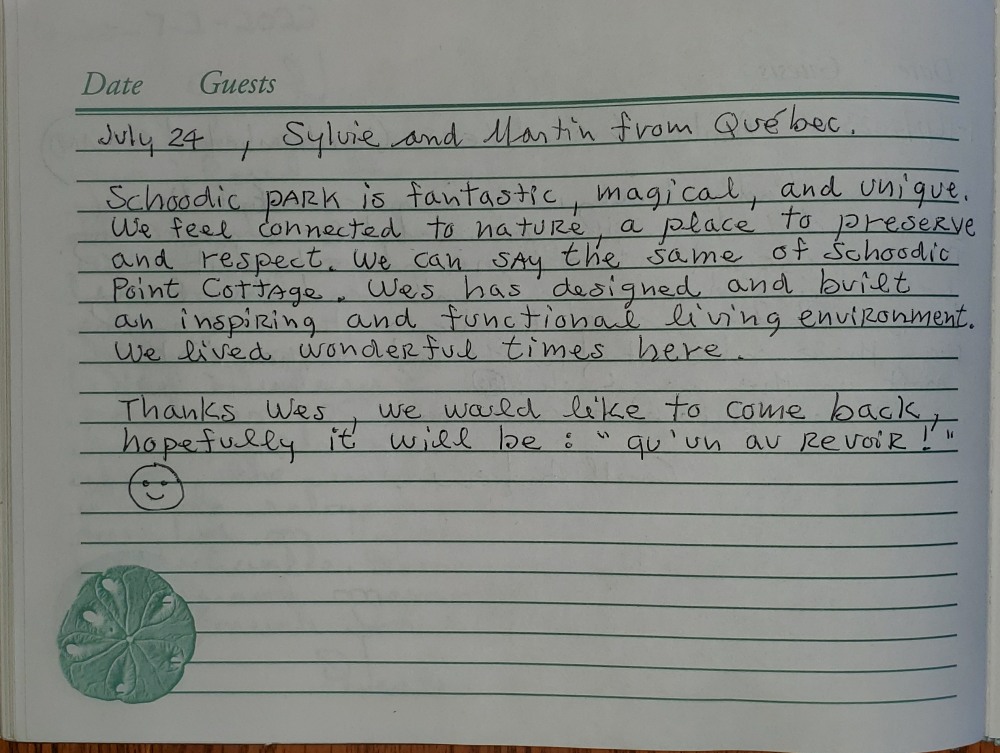 Date Guests
July 24 , Sylvie and Martin from Québec.
Schoodic PARK is fantastic, magical, and unique.
We feel connected to natuRE, a place to pRESERVE
and respect. We can SAY the same of Schoodic
Point CoTTAge. Wes has designed and built
an inspiRing and functional living enviRonment.
We lived wondeRful times here.
Thanks Wes, we would like to come back,
hopefully it will be : "qu'un au RevoiR!"